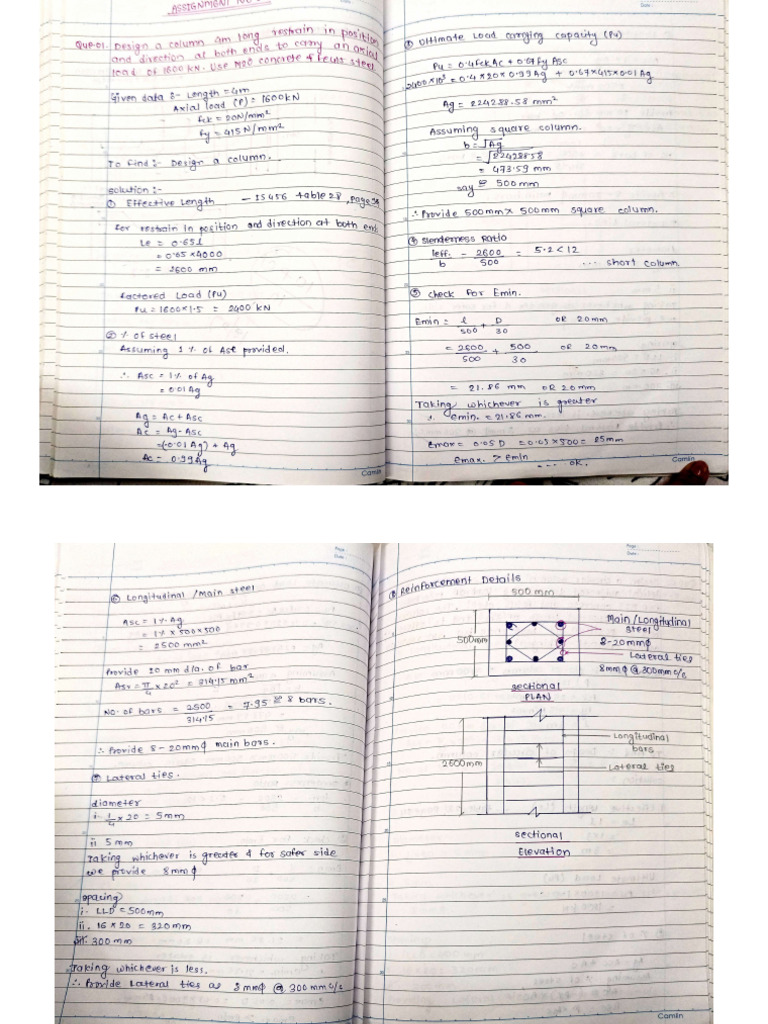 ASSIGNMENT NO
Que-01. Design a column 4m long restrain in position
and direction at both ends to carry an axial
load of 1600 KN. Use M20 concrete & Fe415 steel.
Given data :- Length = 4m
Axial load (P) = 1600 KN
fck = 20N/mm²
fy = 415 N/mm²
To find :- Design a column.
Solution :-
① Effective Length - IS 456 table 28, page
for restrain in position and direction at both end
Le = 0.65l
= 0.65 x 4000
= 2600 mm
factored Load (Pu)
Pu = 1600 x 1.5 = 2400 KN
② % of steel
Assuming 1% of Ast provided.
∴ Asc = 1% of Ag
= 0.01 Ag
Ag = Ac + Asc
Ac = Ag - Asc
= (-0.01 Ag) + Ag
Ac = 0.99 Ag
Camlin
Date :
③ Ultimate Load carrying capacity (Pu)
Pu = 0.4 fck Ac + 0.67 Fy Asc
2400 x 10³ = 0.4 x 20 x 0.99 Ag + 0.67 x 415 x 0.01 Ag
Ag = 224288.58 mm²
Assuming square column.
b = √Ag
= √224288.58
= 473.59 mm
say ≅ 500 mm
∴ Provide 500mm x 500mm square column.
④ Slenderness Ratio
leff. / b = 2600 / 500 = 5.2 < 12 ... short column.
⑤ check for Emin.
Emin = l / 500 + D / 30 OR 20mm
= 2600 / 500 + 500 / 30 OR 20mm
= 21.86 mm OR 20mm
Taking whichever is greater
∴ emin. = 21.86 mm.
emax = 0.05 D = 0.05 x 500 = 25mm
emax. > emin
.... OK.
Camlin
⑥ Longitudinal / Main steel
Asc = 1% Ag
= 1% x 500 x 500
= 2500 mm²
Provide 20 mm dia. of bar
= π/4 x 20² = 314.15 mm²
No. of bars = 2500 / 314.15 = 7.95 ≅ 8 bars.
∴ Provide 8 - 20mmφ main bars.
⑦ Lateral ties.
diameter
i. 1/4 x 20 = 5mm
ii 5 mm
Taking whichever is greater & for safer side
we provide 8mmφ
spacing
i. LLD = 500mm
ii. 16 x 20 = 320 mm
iii. 300 mm
Taking whichever is less.
∴ Provide Lateral ties as 8mmφ @ 300mm c/c
Page :
Date :
⑧ Reinforcement Details
500 mm
500mm
Main/Longitudinal
steel
8-20mmφ
Lateral ties
8mmφ @ 300mm c/c
sectional
PLAN
2600mm
Longitudinal
bars
Lateral ties
sectional
Elevation
Camlin